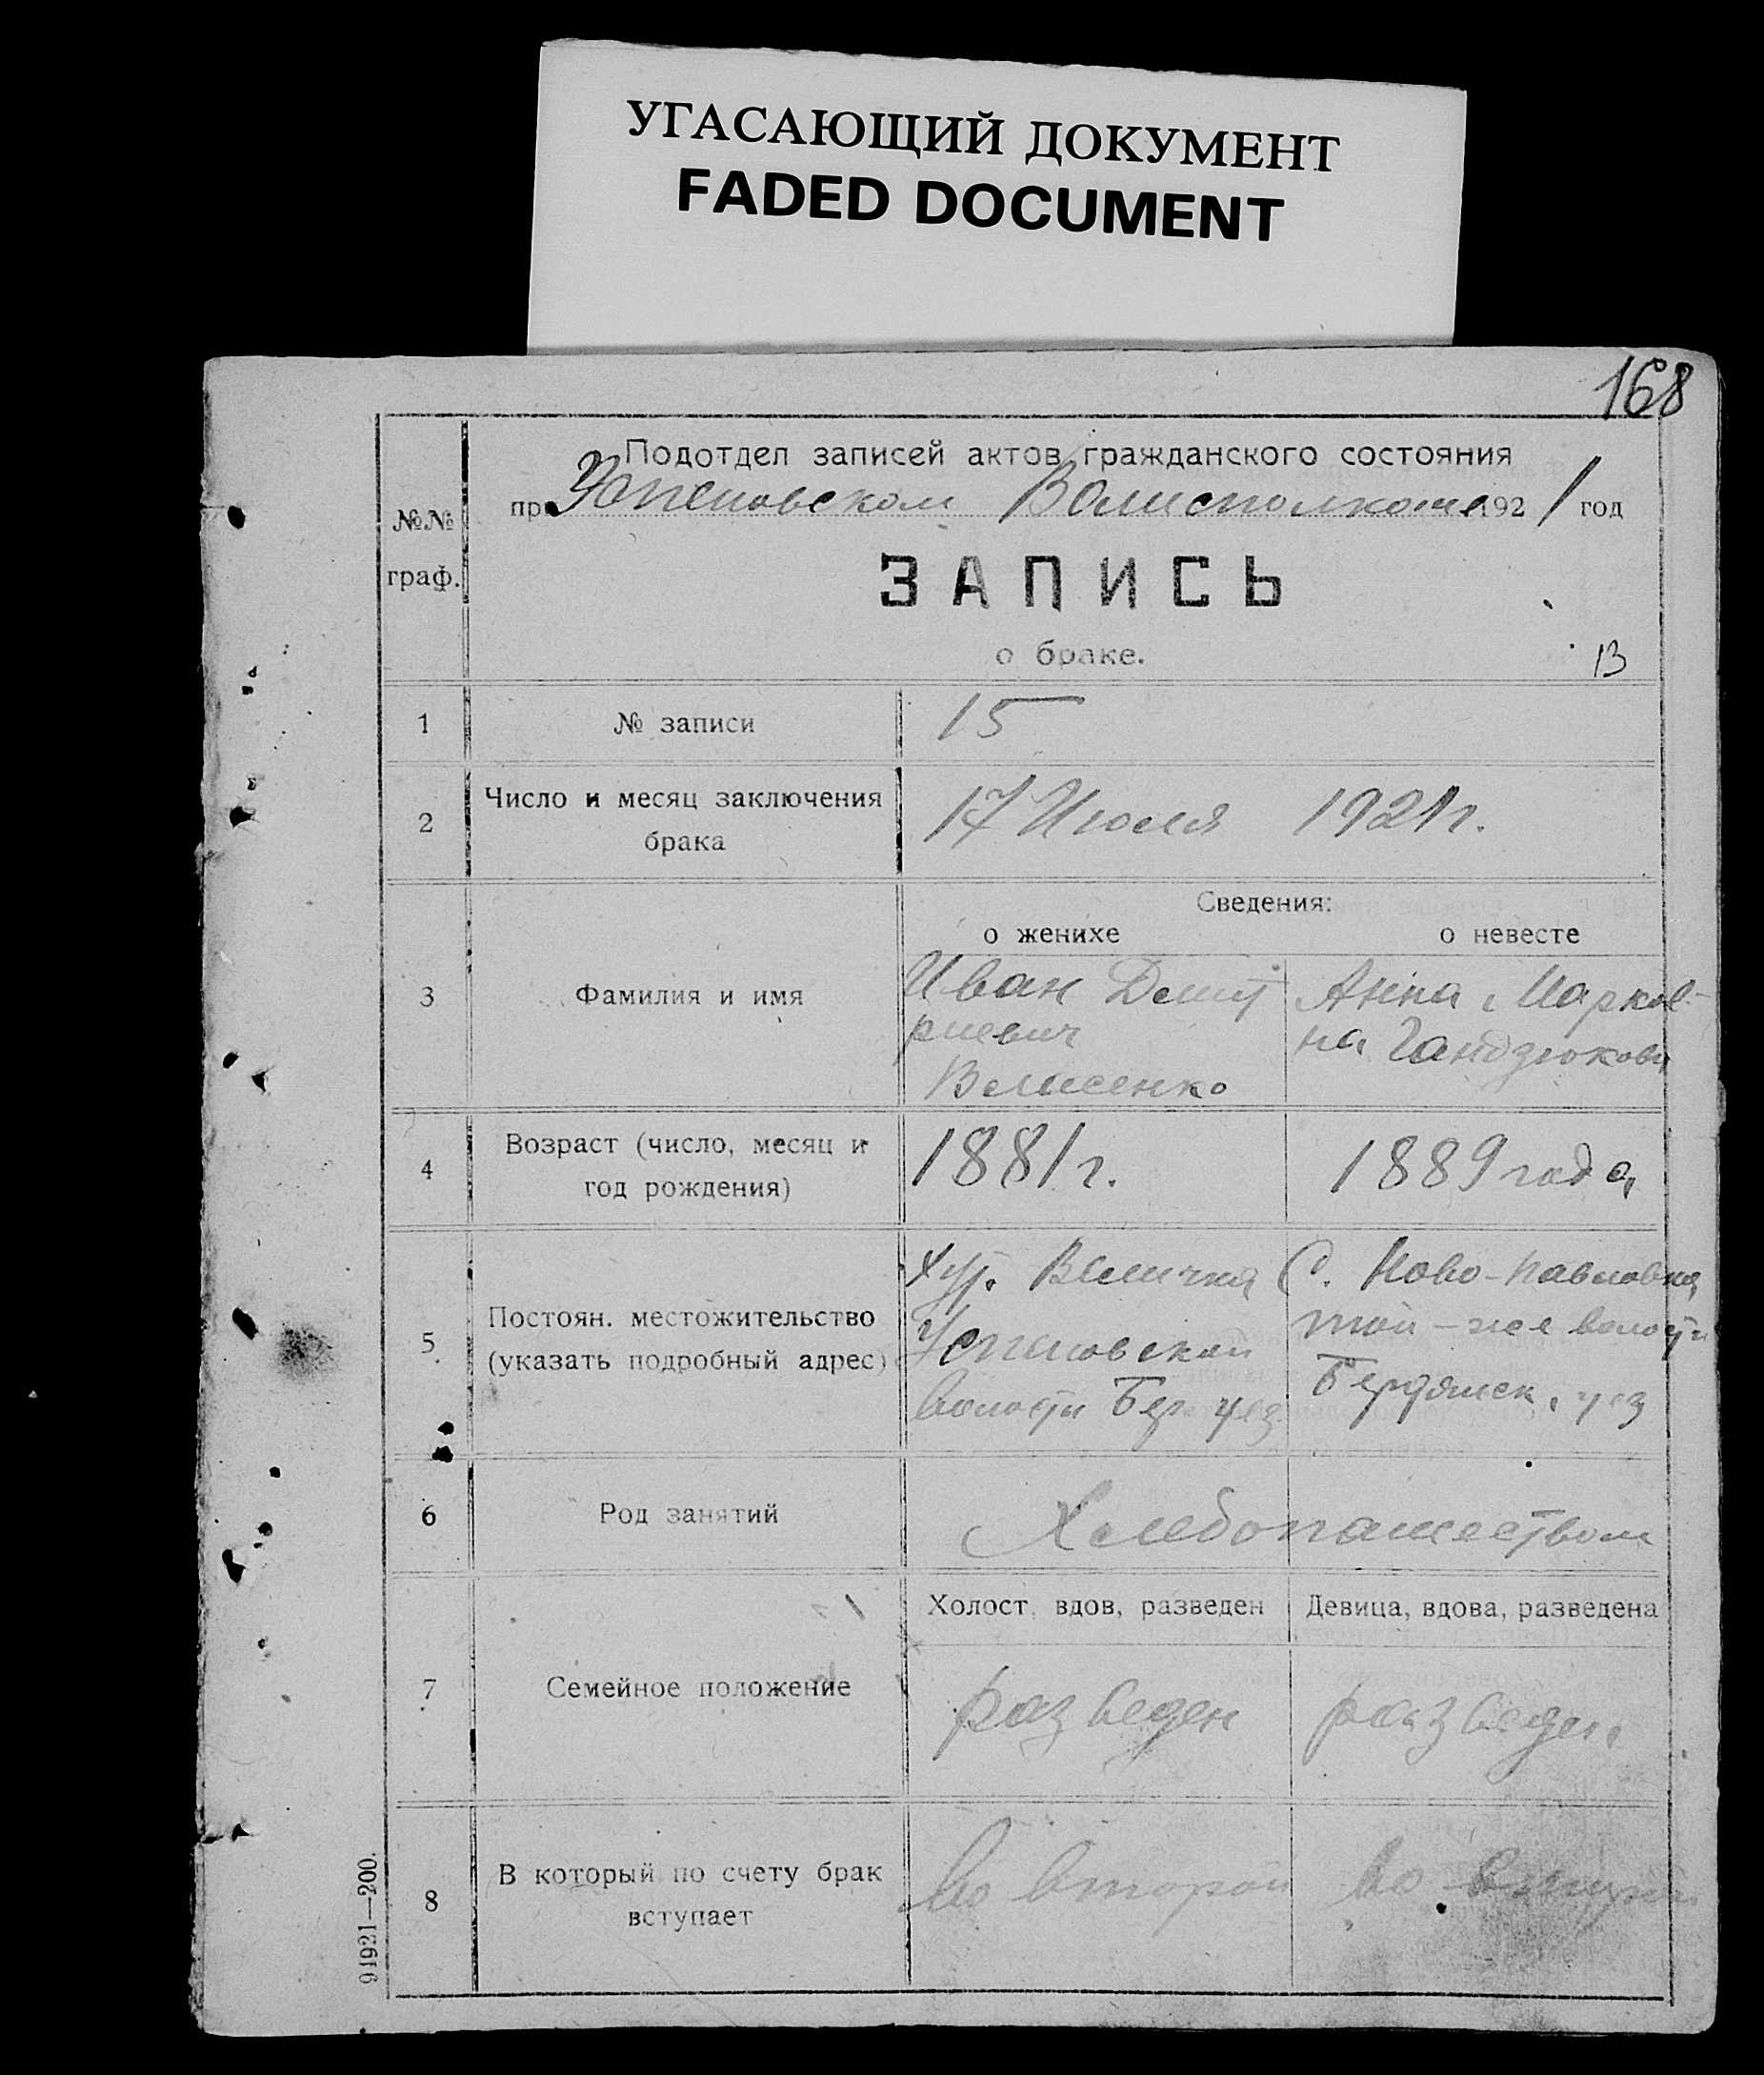 УГАСАЮЩИЙ ДОКУМЕНТ
FADED DOCUMENT
168
Подотдел записей актов гражданского состояния
при Успеновском Волисполкоме 1921 год
№№
граф.
ЗАПИСЬ
о браке.
13
1 № записи 15
2 Число и месяц заключения
брака
17 Июля 1921 г.
Сведения:
о женихе о невесте
3 Фамилия и имя
Иван Дмит
риевич
Анна Марков-
на Гандзюкова
4 Возраст (число, месяц и
год рождения)
1881 г. 1889 года
5 Постоян. местожительство
(указать подробный адрес)
Хут.
Успеновской
волости Бер. уез
С. Ново-Павловка
той-же волости
Бердянск. уез
6 Род занятий Хлебопашеством
Холост, вдов, разведен Девица, вдова, разведена
7 Семейное положение
разведен разведен.
8 В который по счету брак
вступает
во второй во второй
91921—200.